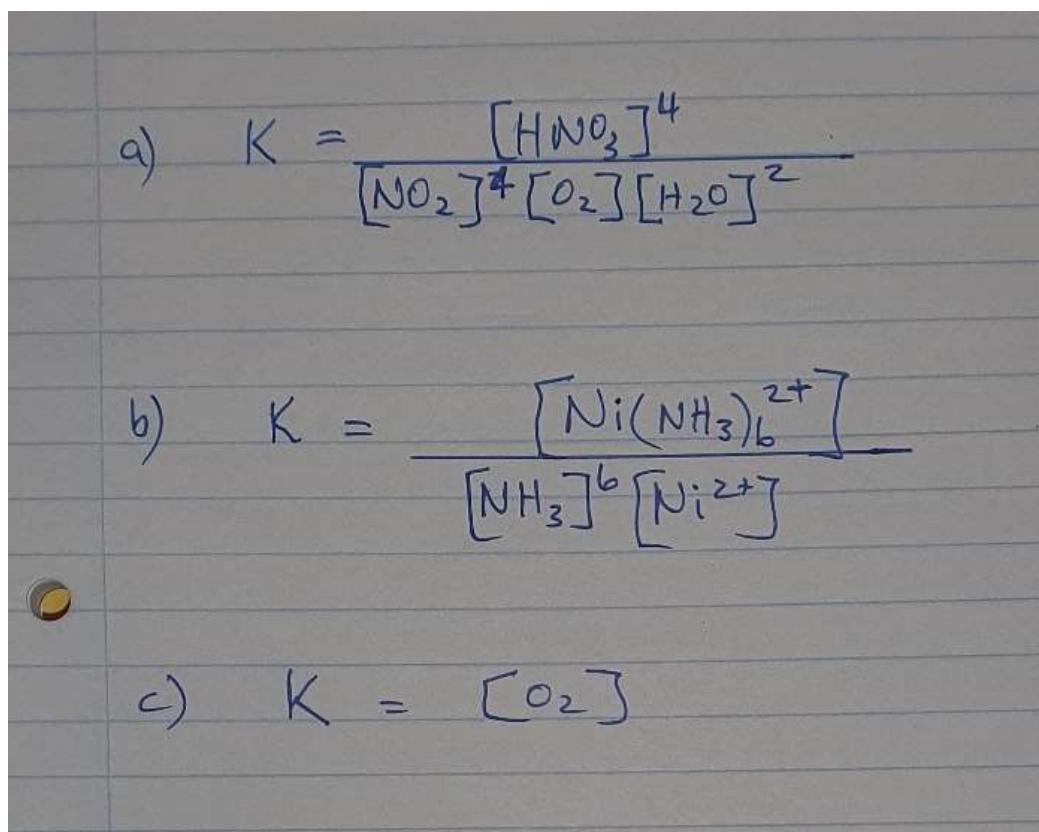 a) K = [HNO₃]⁴
[NO₂]⁴ [O₂] [H₂O]²
b) K = [Ni(NH₃)₆²⁺]
[NH₃]⁶ [Ni²⁺]
c) K = [O₂]